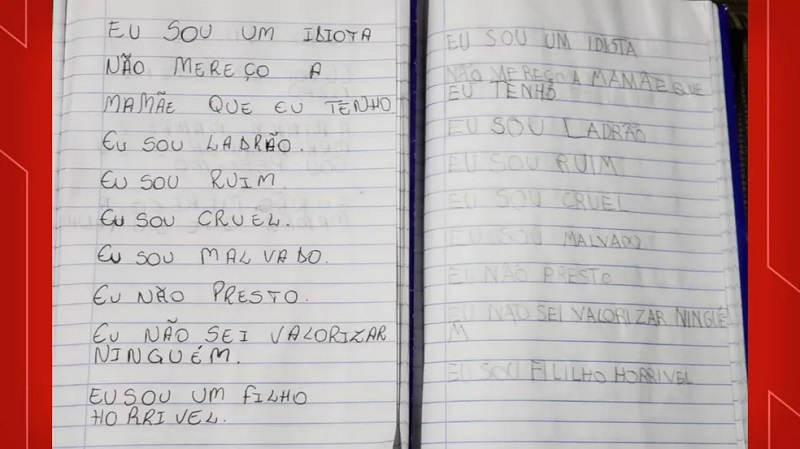 EU SOU UM IDIOTA
NÃO MEREÇO A
MAMÃE QUE EU TENHO
EU SOU LADRÃO.
EU SOU RUIM.
EU SOU CRUEL.
EU SOU MALVADO.
EU NÃO PRESTO.
EU NÃO SEI VALORIZAR
NINGUÉM.
EU SOU UM FILHO
HORRIVEL.
EU SOU UM IDISTA
NÃO MEREÇO A MAMÃE QUE
EU TENHO
EU SOU LADRÃO
EU SOU RUIM
EU SOU CRUEL
EU SOU MALVADO
EU NÃO PRESTO
EU NÃO SEI VALORIZAR NINGUÉ
M
EU SOU FILILHO HORRIVEL